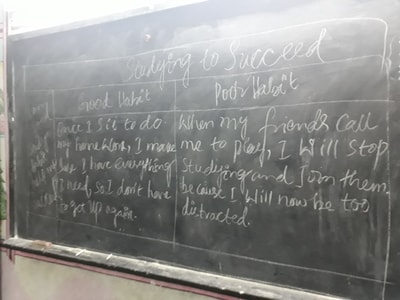 Studying to Succeed
Good Habit
Poor Habit
Once I sit to do
my home work, I make
Sure I have everything
I need, So I don't have
to get up again.
When my friends call
me to play, I will stop
Studying and Join them
because I will now be too
distracted.